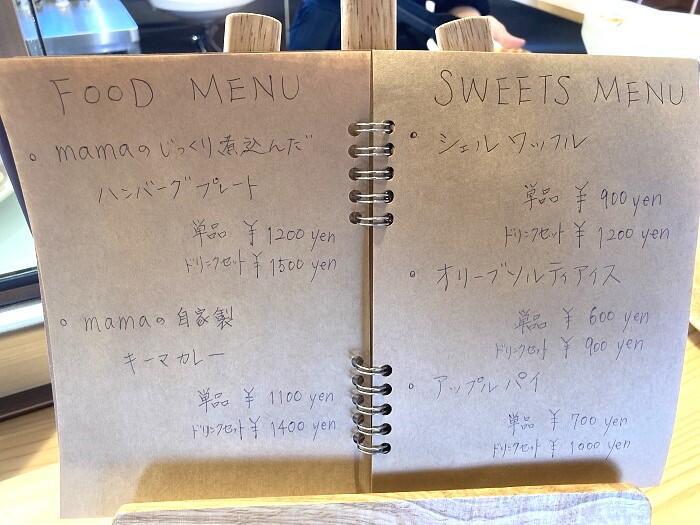 FOOD MENU
。mamaのじっくり煮込んだ
ハンバーグプレート
単品 ¥ 1200 yen
ドリンクセット ¥ 1500 yen
。mamaの自家製
キーマカレー
単品 ¥ 1100 yen
ドリンクセット ¥ 1400 yen
SWEETS MENU
。シェルワッフル
単品 ¥ 900 yen
ドリンクセット ¥ 1200 yen
。オリーブソルティアイス
単品 ¥ 600 yen
ドリンクセット ¥ 900 yen
。アップルパイ
単品 ¥ 700 yen
ドリンクセット ¥ 1000 yen